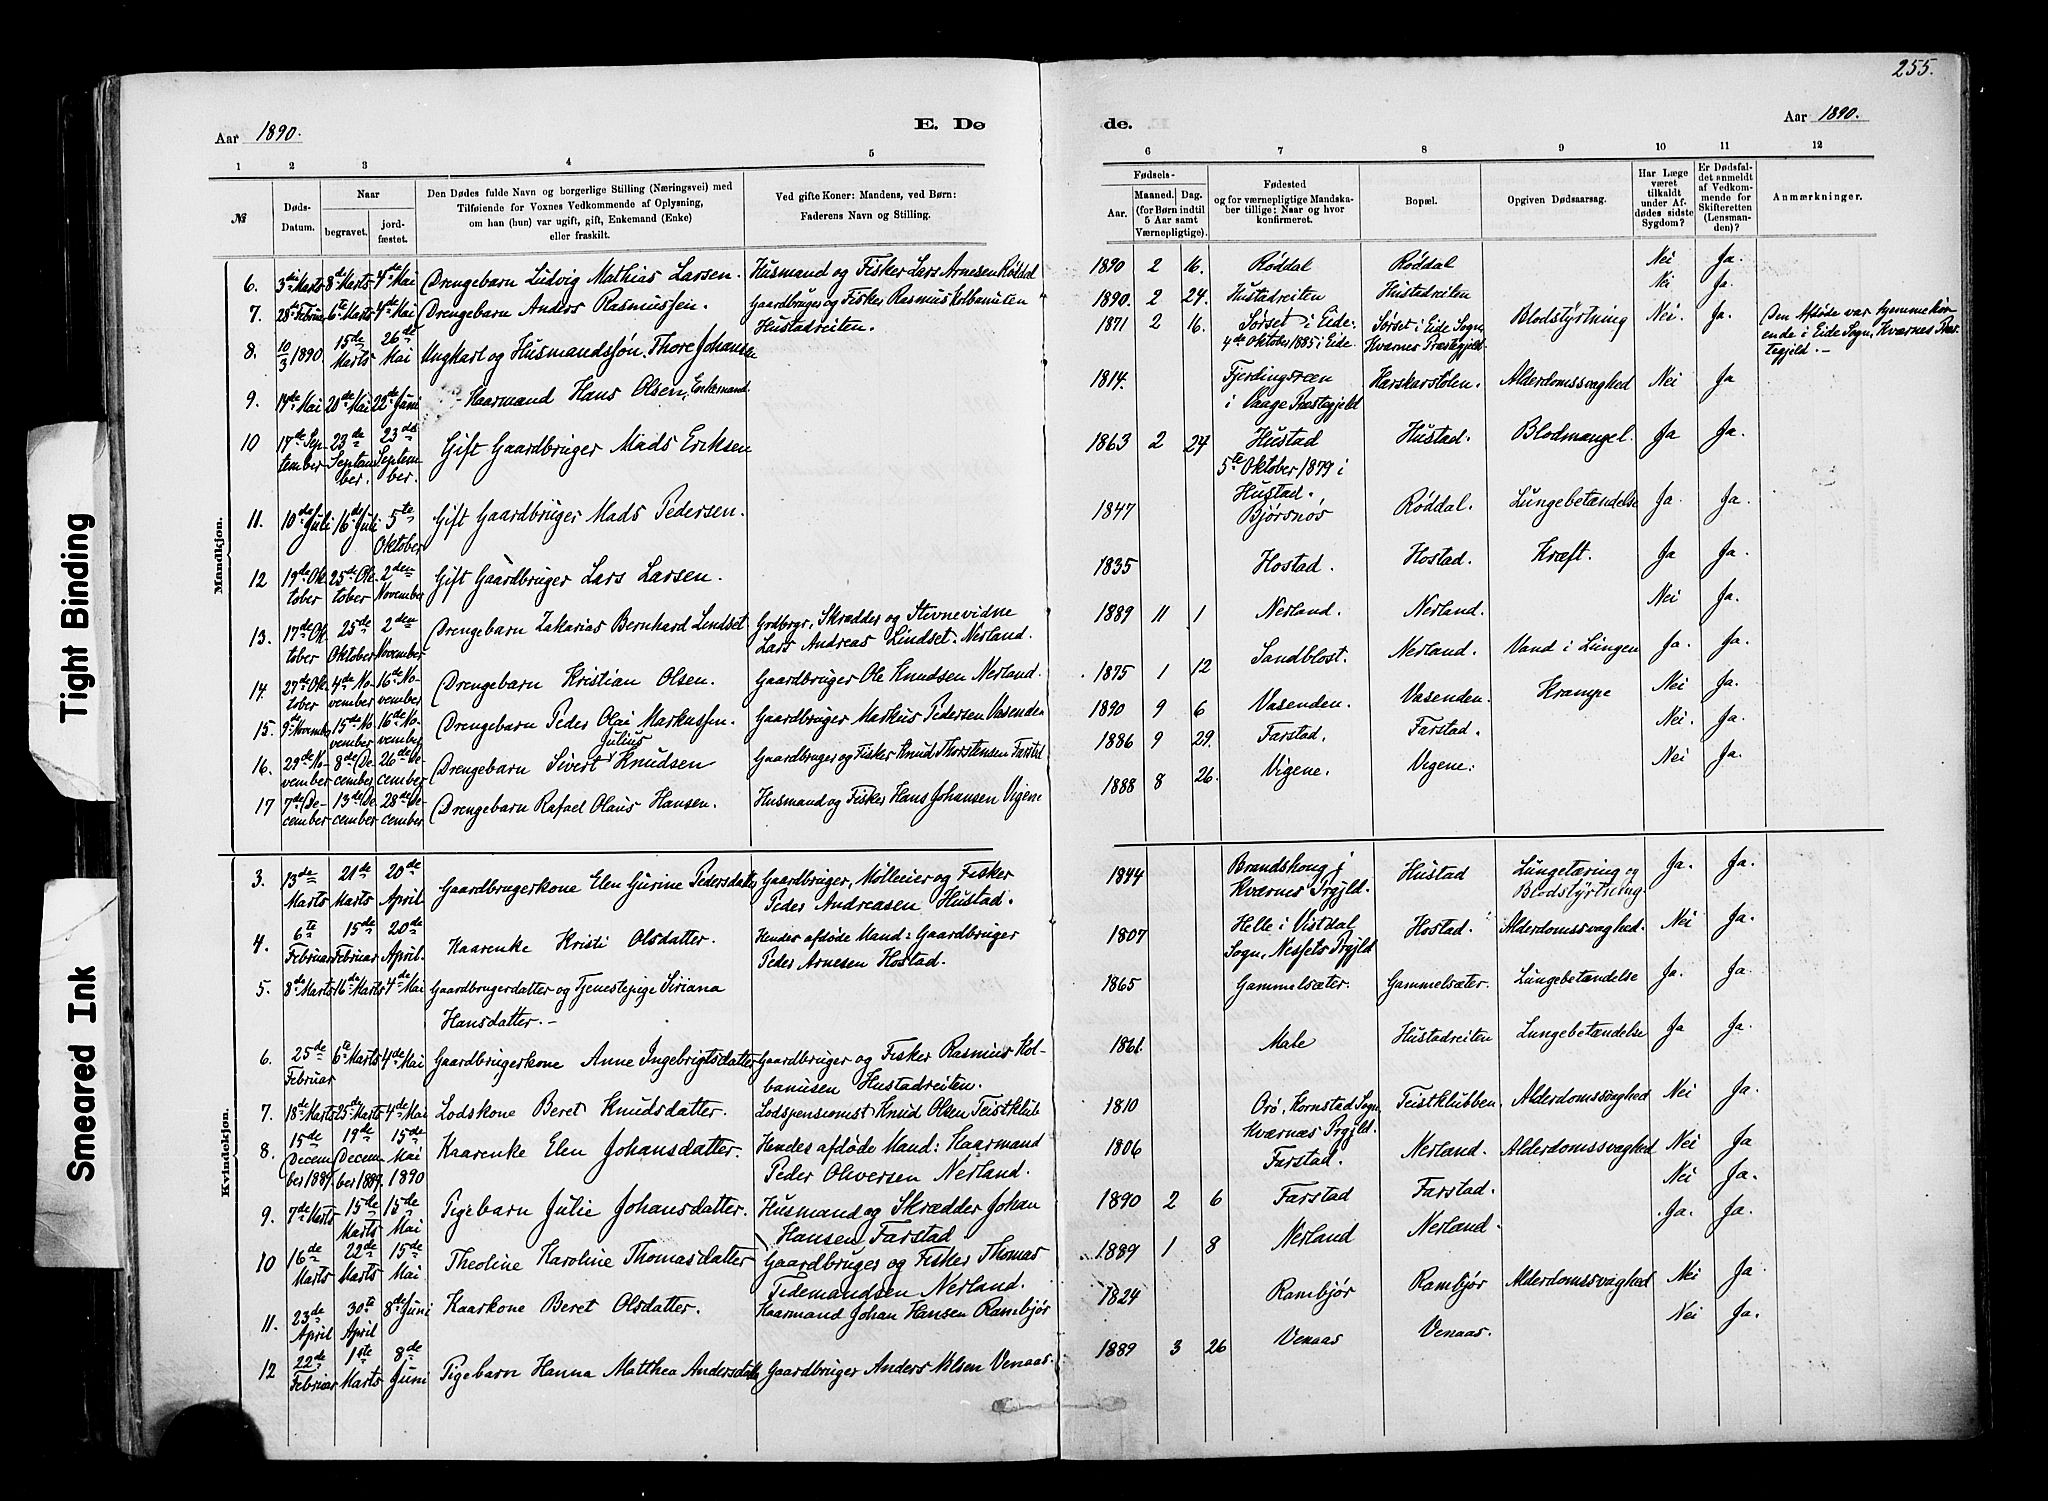 255.
Aar 1890.
E. Dø
de.
Aar 1890.
1 2 3 4 5
6 7 8 9 10 11 12
№
Døds-Datum.
Naar
begravet.
jord-fæstet.
Den Dødes fulde Navn og borgerlige Stilling (Næringsvei) med
Tilføiende for Voxnes Vedkommende af Oplysning,
om han (hun) var ugift, gift, Enkemand (Enke)
eller fraskilt.
Ved gifte Koner: Mandens, ved Børn:
Faderens Navn og Stilling.
Fødsels-
Aar.
Maaned. Dag.
(for Børn indtil
5 Aar samt
Værnepligtige).
Fødested
og for værnepligtige Mandska-
ber tillige: Naar og hvor
konfirmeret.
Bopæl.
Opgiven Dødsaarsag.
Har Læge
været
tilkaldt
under Af-
dødes sidste
Sygdom?
Er Dødsfal-
det anmeldt
af Vedkom-
mende for
Skifteretten
(Lensman-
den)?
Anmærkninger.
Mandkjøn.
6. 3die Marts 8de Marts 4de Mai Drengebarn Ludvig Mathias Larsen. Husmand og Fisker Lars Arnesen Røddal 1890 2 16. Røddal Røddal Nei Ja.
7. 28de Februar 6te Marts 4de Mai Drengebarn Anders Rasmussen. Gaardbruger og Fisker Rasmus Kolbanusen
Hustadreiten. 1890. 2 24. Hustadreiten Hustadreiten Nei Ja.
8. 10/3 1890 15de Marts 26de Mai Ungkarl og Husmandssøn Thore Johansen 1871 2 16. Sørset i Eide.
4de Oktober 1885 i Eide. Sørset i Eide Sogn,
Kværnes Præstegjeld. Blodstyrtning Nei. Ja. Den Afdøde var hjemmehør-
ende i Eide Sogn, Kværnes Præs-
tegjeld.-
9. 14de Mai 20de Mai 22de Juni Kaarmand Hans Olsen, Enkemand. 1814. Fjerdingsreen
i Vaage Præstegjeld Harskarstolen. Alderdomssvaghed Nei Ja
10 17de September 23de September. 23de September. Gift Gaardbruger Mads Eriksen 1863 2 24 Hustad
5te Oktober 1879 i
Hustad. Hustad. Blodmangel. Ja Ja.
11. 10de Juli 16de Juli 5te Oktober Gift Gaardbruger Mads Pedersen. 1847 Bjørsnos Røddal. Lungebetændelse Ja. Ja.
12 19de Oktober 25de Oktober 2den November Gift Gaardbruger Lars Larsen. 1835 Hostad. Hostad. Kræft. Ja Ja.
13. 17de Oktober 25de Oktober 2den November Drengebarn Zakarias Bernhard Lindset Grdbrgr, Skrædder og Stevnevidne
Lars Andreas Lindset. Nerland. 1889 11 1 Nerland. Nerland. Nei Ja.
14 27de Oktober 4de November 16de November Drengebarn Kristian Olsen. Gaardbruger Ole Knudsen Nerland. 1875 1 12 Sandblost. Nerland. Vand i Lungen Ja. Ja.
15. 9de November 15de November 16de November Drengebarn Peder Olai Markussen. Gaardbruger Markus Pedersen Vasenden 1890 9 6 Vasenden. Vasenden. Krampe Nei Ja.
16. 29de November 8de December 26de December Drengebarn Sivert Julius Knudsen Gaardbruger og Fisker Knud Thorstensen Farstad 1886 9 29. Farstad. Farstad. Nei. Ja.
17 7de December 13de December 28de December Drengebarn Rafael Olaus Hansen. Husmand og Fisker Hans Johansen Vigene 1888 8 26. Vigene. Vigene. Nei Ja.
Kvindekjøn.
3. 13de Marts 21de Marts 20de April Gaardbrugerkone Elen Gurine Pedersdatter Gaardbruger, Mølleeier og Fisker
Peder Andreasen Hustad. 1844 Brandshoug i
Kværnes Prgjld. Hustad Lungetæring og
Blodstyrtning Ja. Ja.
4. 6te Februar 15de Februar 20de April. Kaarenke Kristi Olsdatter. Hendes afdøde Mand: Gaardbruger
Peder Arnesen Hostad. 1807 Helle i Vistdal
Sogn, Nessets Prgjld Hostad. Alderdomssvaghed. Nei Ja.
5. 8de Marts 16de Marts 4de Mai Gaardbrugerdatter og Tjenestepige Siriana
Hansdatter.- 1865 Gammelsæter. Gammelsæter. Lungebetændelse Ja. Ja
6. 25de Februar 6te Marts 4de Mai Gaardbrugerkone Anne Ingebrigtsdatter Gaardbruger og Fisker Rasmus Kol-
banusen Hustadreiten. 1861. Male Hustadreiten Lungebetændelse Ja Ja.
7. 18de Marts 25de Marts 4de Mai Lodskone Beret Knudsdatter. Lodspensionist Knud Olsen Teistklub 1810 Orø, Kornstad Sogn,
Kværnæs Prgjld. Teistklubben. Alderdomssvaghed Nei Ja.
8. 15de December 1889 19de December 1889. 15de Mai 1890 Kaarenke Elen Johansdatter. Hendes afdøde Mand: Kaarmand
Peder Oliversen Nerland. 1806 Farstad. Nerland. Alderdomssvaghed Nei Ja
9. 7de Marts 15de Marts 15de Mai Pigebarn Julie Johansdatter. Husmand og Skrædder Johan
Hansen Farstad 1890 2 6 Farstad Farstad. Nei Ja.
10 16de Marts 22de Marts 15de Mai Theoline Karoline Thomasdatter Gaardbruger og Fisker Thomas
Tidemandsen Nerland. 1889 1 8 Nerland Nerland. Ja. Ja.
11. 23de April 30te April 8de Juni Kaarkone Beret Olsdatter. Kaarmand Johan Hansen Rambjør 1824 Rambjør Rambjør Alderdomssvaghed Nei Ja
12 22de Februar 1ste Marts 8de Juni Pigebarn Hanna Matthea Andersdatter Gaardbruger Anders Nilsen Venaas. 1889 3 26 Venaas Venaas. Nei Ja.
Tight Binding
Smeared Ink